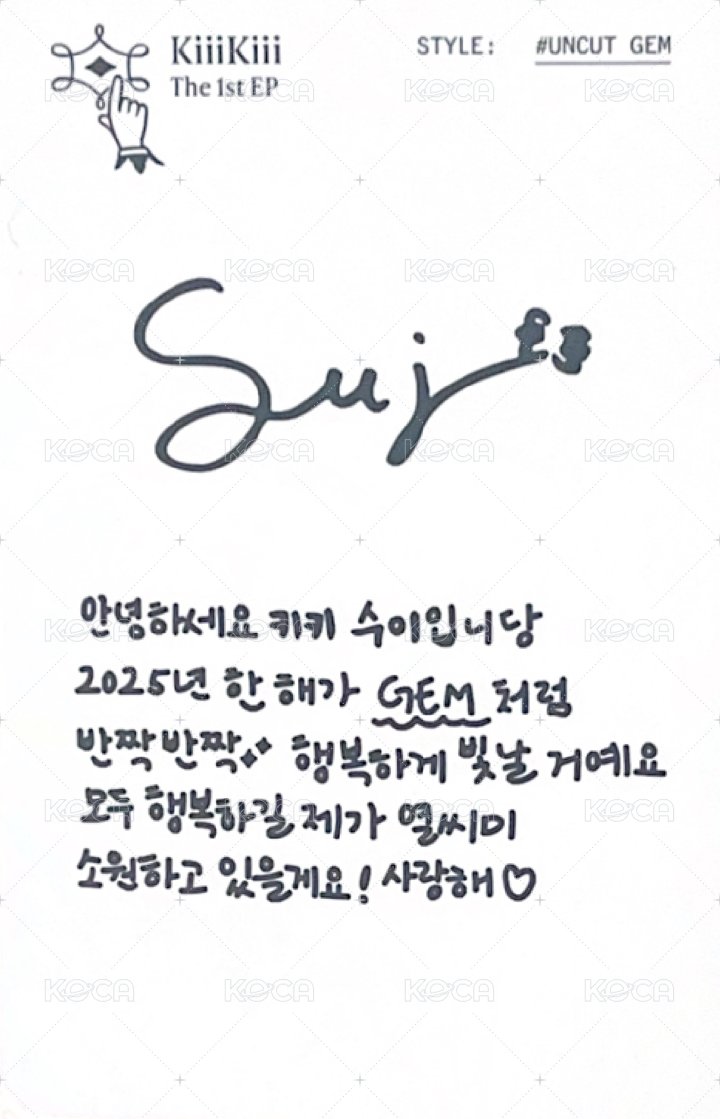 KiiiKiii
The 1st EP
STYLE: #UNCUT GEM
Sui
안녕하세요 키키 수이입니당
2025년 한 해가 GEM 처럼
반짝반짝 행복하게 빛날 거예요
모두 행복하길 제가 열씨미
소원하고 있을게요! 사랑해♡
KOCA